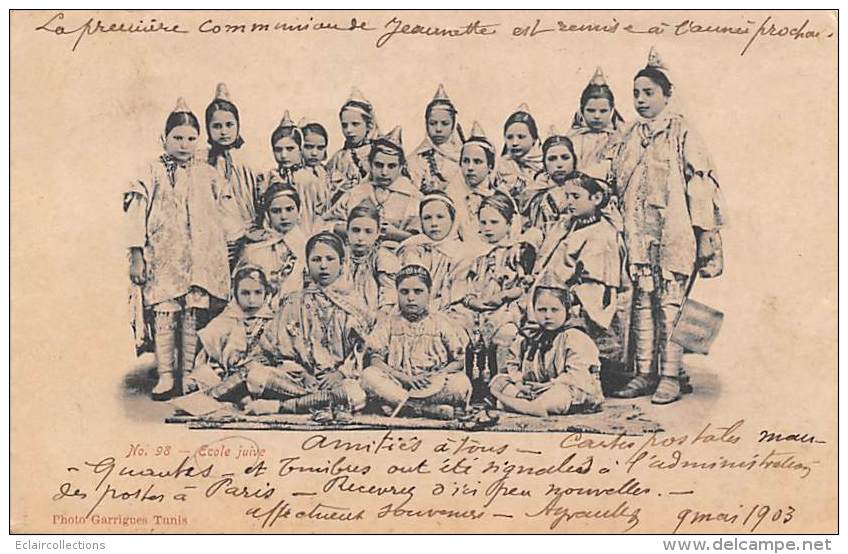 La première communion de Jeannette est remise à l'année prochai.
No. 98 - Ecole juive
Amitiés à tous - Cartes postales man-
-quantes - et timbres ont été signalés à l'administration
des postes à Paris - Recevrez d'ici peu nouvelles. -
affectueux souvenirs - 9 mai 1903
Photo Garrigues Tunis
Eclaircollections
www.delcampe.net